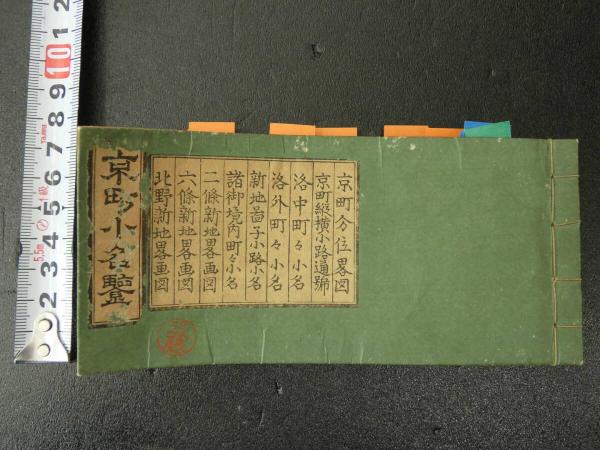 京町分位畧図
京町縦横小路通號
洛中町々小名
洛外町々小名
新地啚子小路小名
諸御境内町々小名
二條新地畧画図
六條新地畧画図
北野新地畧画図
京町小名鑒
2 3 4 5 6 7 8 9 10 1 2
5.5m
1級